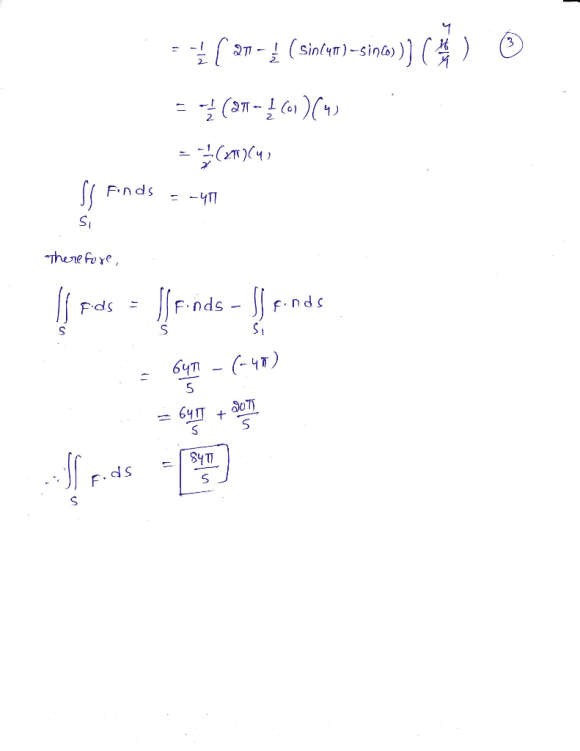 = -1/2 [ 2π - 1/2 ( sin(4π) - sin(0) ) ] ( 16/4 ) 4 ③
= -1/2 ( 2π - 1/2 (0) ) ( 4 )
= -1/2 (2π) (4)
∬_{S₁} F·n ds = -4π
Therefore,
∬_S F·ds = ∬_S F·n ds - ∬_{S₁} F·n ds
= 64π/5 - (-4π)
= 64π/5 + 20π/5
∴ ∬_S F·ds = 84π/5